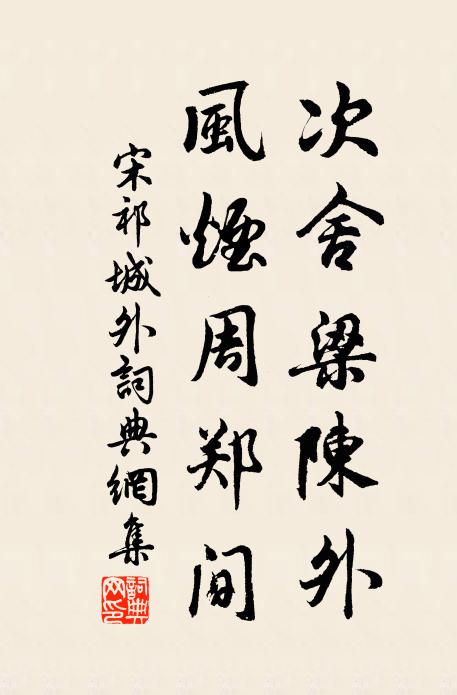 次舍梁陳外
風煙周郑间
宋祁城外詞典網集
詞典網印